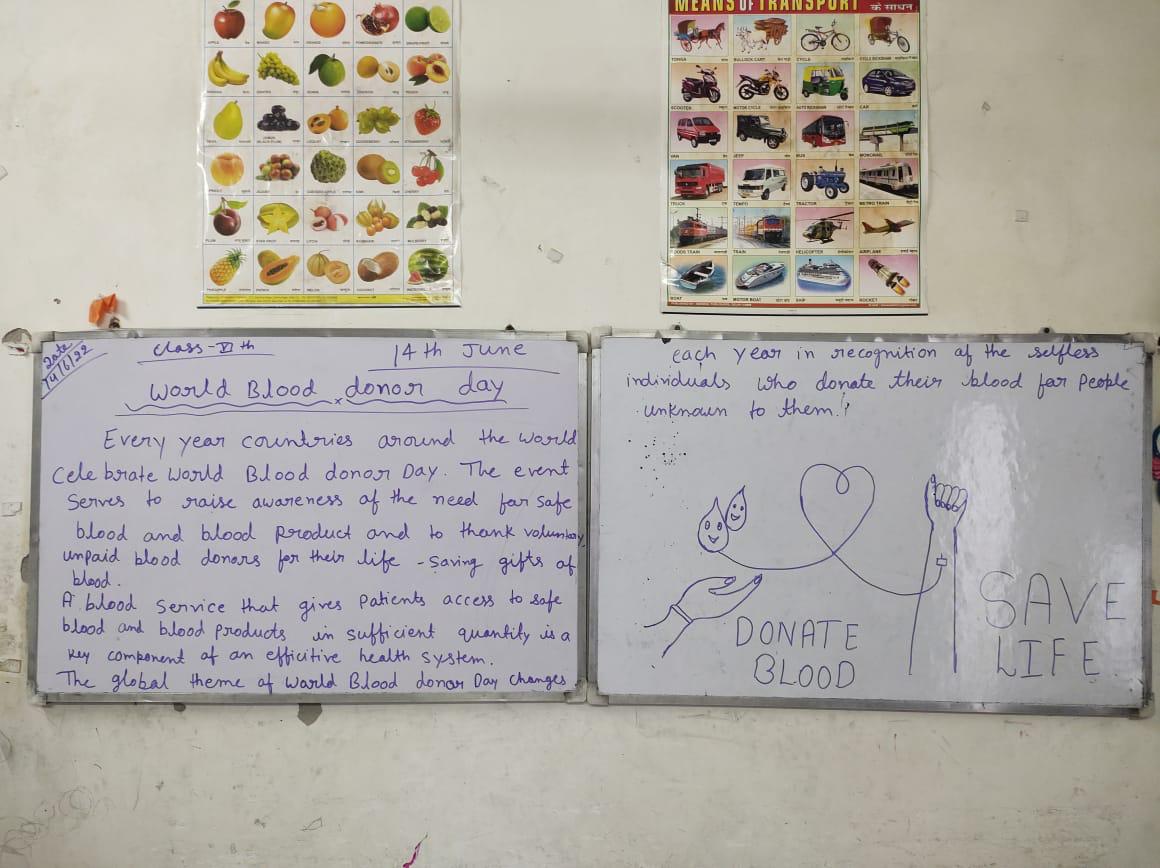 APPLE
MANGO
ORANGE
POMEGRANATE
PEACH
PLUM
STAR FRUIT
LITCHI
MULBERRY
PINEAPPLE
PAPAYA
MELON
COCONUT
CHERRY
KIWI
MEANS OF TRANSPORT के साधन
TONGA
BULLOCK CART
CYCLE
CYCLE RICKSHAW
SCOOTER
MOTOR CYCLE
AUTO RICKSHAW
CAR
VAN
JEEP
BUS
MONORAIL
TRUCK
TEMPO
TRACTOR
METRO TRAIN
GOODS TRAIN
TRAIN
HELICOPTER
AIRPLANE
BOAT
MOTOR BOAT
SHIP
ROCKET
Date
14/6/22
Class-VI th
14th June
World Blood donor day
Every year countries around the world
Celebrate World Blood donor Day. The event
Serves to raise awareness of the need for safe
blood and blood product and to thank voluntary,
unpaid blood donors for their life-saving gifts of
blood.
A blood Service that gives patients access to safe
blood and blood products in sufficient quantity is a
key component of an efficitive health system.
The global theme of World Blood donor Day changes
each year in recognition of the selfless
individuals who donate their blood for people
unknown to them.!
DONATE
BLOOD
SAVE
LIFE